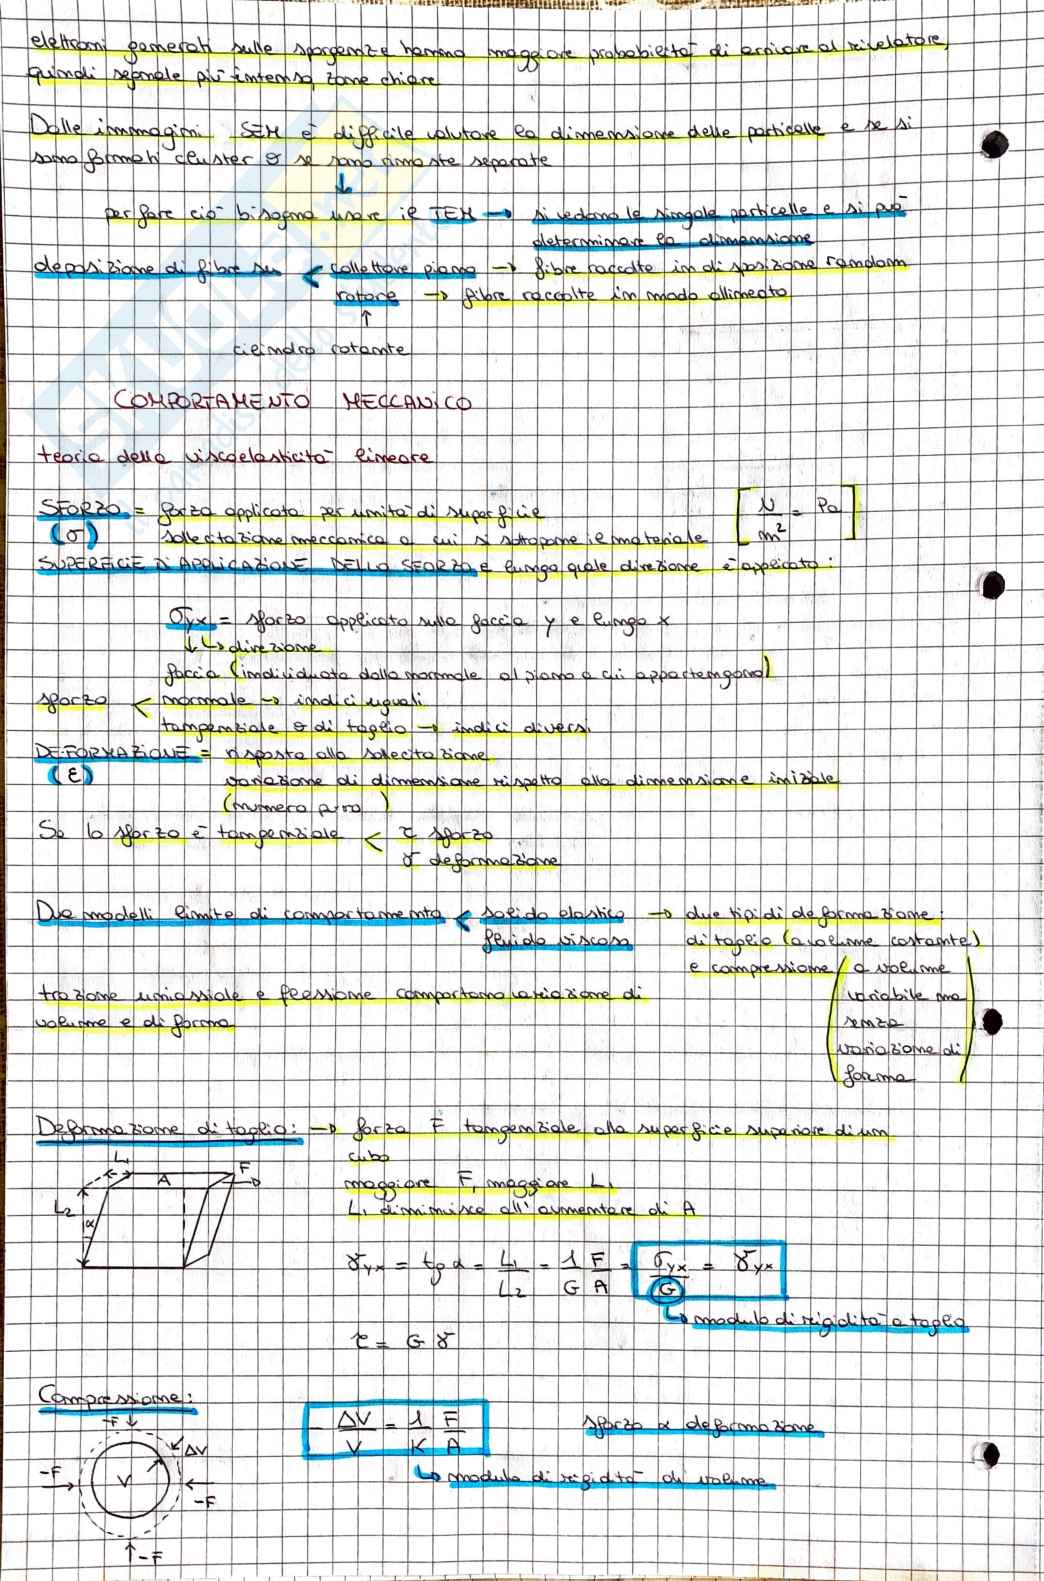 elettroni generati sulle sporgenze hanno maggiore probabilità di arrivare al rivelatore,
quindi segnale più intenso, zone chiare
Dalle immagini SEM è difficile valutare la dimensione delle particelle e se si
sono formati cluster o se sono rimaste separate
↓
per fare ciò bisogna usare il TEM → si vedono le singole particelle e si può
determinare la dimensione
deposizione di fibre su < collettore piano → fibre raccolte in disposizione random
rotore → fibre raccolte in modo allineato
↑
cilindro rotante
COMPORTAMENTO MECCANICO
teoria della viscoelasticità lineare
SFORZO = forza applicata per unità di superficie [N/m² = Pa]
(σ) sollecitazione meccanica a cui si sottopone il materiale
SUPERFICIE DI APPLICAZIONE DELLO SFORZO e lungo quale direzione è applicato:
σyx = sforzo applicato sulla faccia y e lungo x
↓↳ direzione
faccia (individuata dalla normale al piano a cui appartengono)
sforzo < normale → indici uguali
tangenziale o di taglio → indici diversi
DEFORMAZIONE = risposta alla sollecitazione
(ε) variazione di dimensione rispetto alla dimensione iniziale
(numero puro)
Se lo sforzo è tangenziale < τ sforzo
γ deformazione
Due modelli limite di comportamento < solido elastico → due tipi di deformazione:
fluido viscoso di taglio (a volume costante)
e compressione (a volume
variabile ma
senza
variazione di
forma)
trazione uniassiale e flessione comportano variazione di
volume e di forma
Deformazione di taglio: → forza F tangenziale alla superficie superiore di un
cubo
L₁ A F
L₂ α
maggiore F, maggiore L₁
L₁ diminuisce all'aumentare di A
γyx = tg α = L₁/L₂ = 1/G F/A = σyx/G = γyx
↳ modulo di rigidità a taglio
τ = G γ
Compressione:
-F ΔV
-F V -F
-F
- ΔV/V = 1/K F/A
sforzo α deformazione
↳ modulo di rigidità di volume